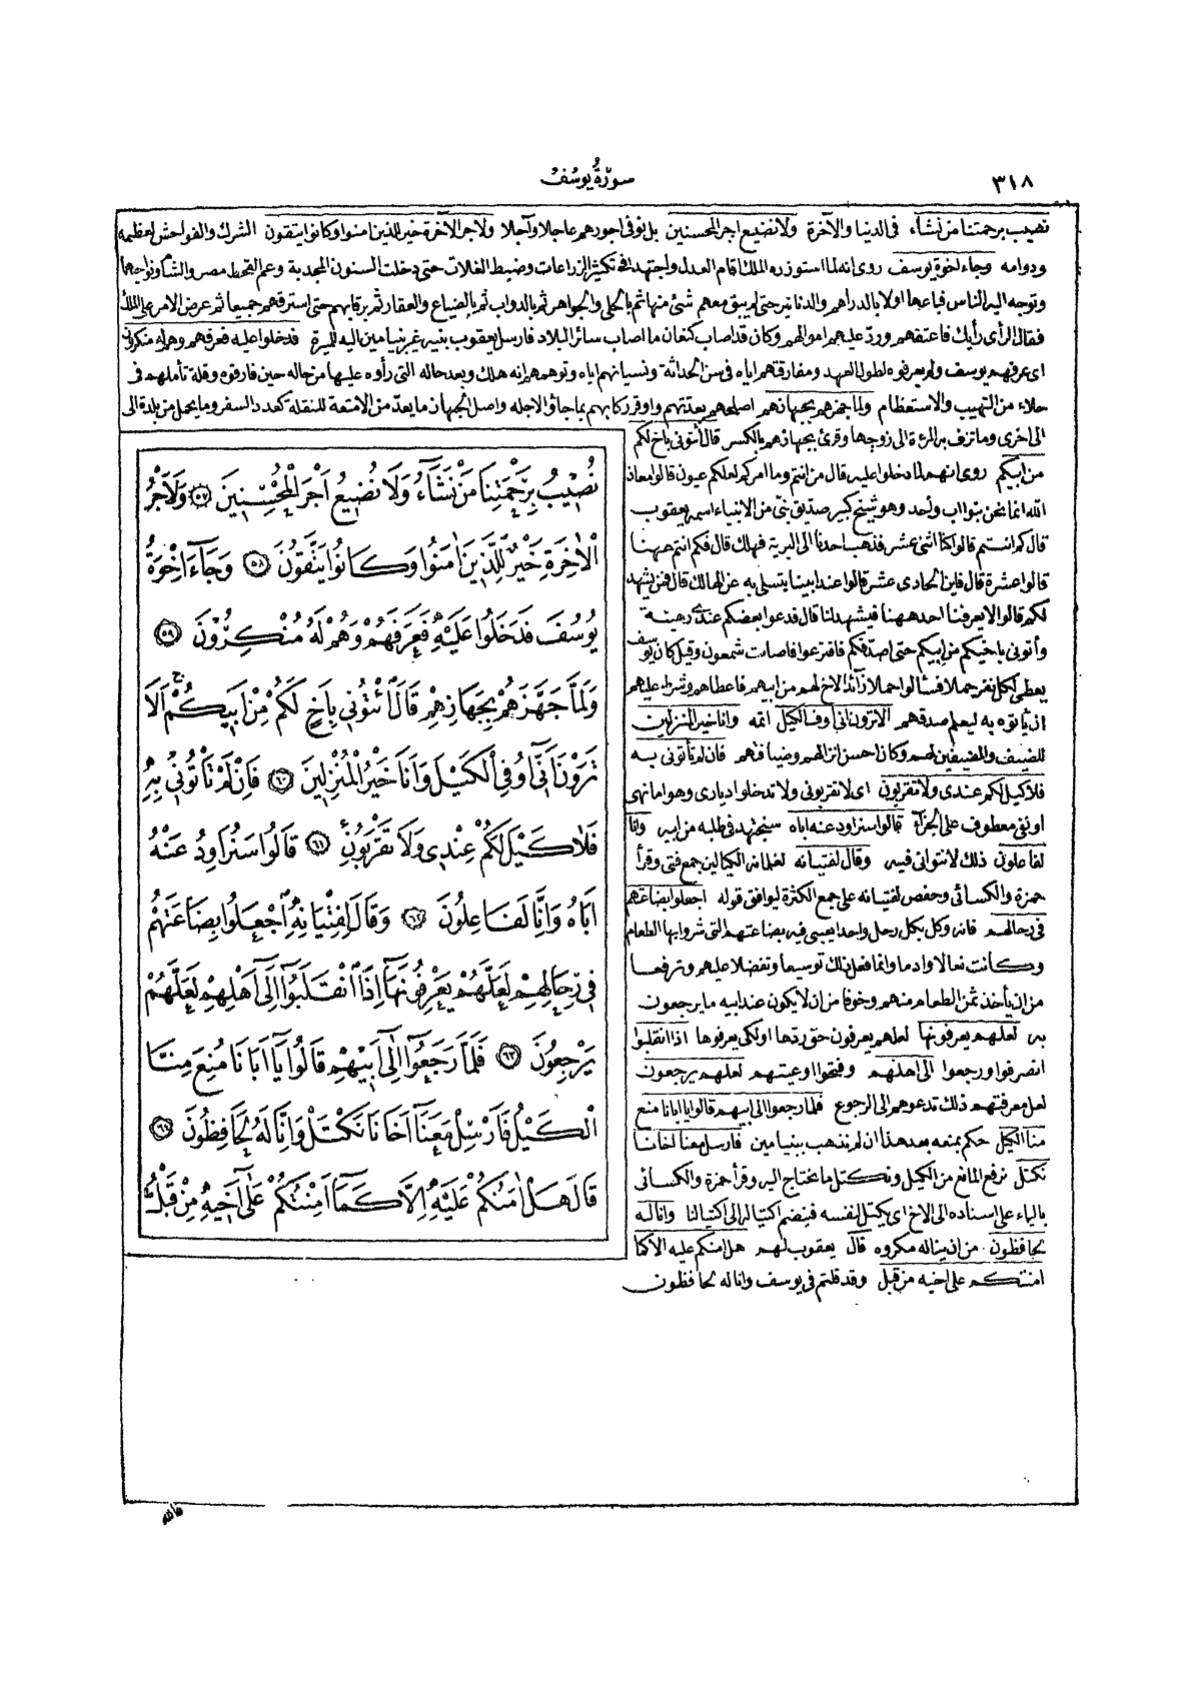 ٣١٨
سورة يوسف
نصيب برحمتنا من نشاء في الدنيا والآخرة ولا نضيع اجر المحسنين بل نوفى اجورهم عاجلا وآجلا ولاجر الآخرة خير للذين امنوا وكانوا يتقون الشرك والفواحش لعظمه
ودوامه وجاء اخوة يوسف روى انه لما استوزره الملك اقام العدل واجتهد فى تكثير الزراعات وضبط الغلات حتى دخلت السنون المجدبة وعم القحط مصر والشأم ونواحيها
وتوجه اليه الناس فباعها اولا بالدراهم والدنانير حتى لم يبق معهم شئ منها ثم بالحلى والجواهر ثم بالدواب ثم بالضياع والعقار ثم برقابهم حتى استرقهم جميعا ثم عرض الامر على الملك
فقال الرأى رأيك فاعتقهم ورد عليهم اموالهم وكان قد اصاب كنعان ما اصاب سائر البلاد فارسل يعقوب بنيه غير بنيامين اليه للميرة فدخلوا عليه فعرفهم وهم له منكرون
اى عرفهم يوسف ولم يعرفوه لطول العهد ومفارقتهم اياه فى سن الحداثة ونسيانهم اياه وتوهمهم انه هلك وبعد حاله التى رأوه عليها من حاله حين فارقوه وقلة تأملهم فى
حلاه من التهيب والاستعظام ولما جهزهم بجهازهم اصلحهم بعدتهم واوقر ركابهم بما جاؤا لاجله واصل الجهاز ما يعد من الامتعة للنقلة كعدد السفر وما يحمل من بلدة الى
اخرى وما تزف به المرءة الى زوجها وقرئ بجهازهم بالكسر قال أتونى باخ لكم
من ابيكم روى انهم لما دخلوا عليه قال من انتم وما امركم لعلكم عيون قالوا معاذ
الله انما نحن بنو اب واحد وهو شيخ كبير صديق نبى من الانبياء اسمه يعقوب
قال كم انتم قالوا كنا اثنى عشر فذهب احدنا الى البرية فهلك قال فكم انتم ههنا
قالوا عشرة قال فاين الحادى عشر قالوا عند ابينا يتسلى به عن الهالك قال فمن يشهد
لكم قالوا لا يعرفنا احد ههنا فيشهد لنا قال فدعوا بعضكم عندى رهينة
وأتونى باخيكم من ابيكم حتى اصدقكم فاقترعوا فاصابت شمعون وقيل كان يوسف
يعطى لكل نفر حملا فسألوا حملا زائدا لاخ لهم من ابيهم فاعطاهم وشرط عليهم
ان يأتوه به ليعلم صدقهم الا ترون انى اوف الكيل اتمه وانا خير المنزلين
للضيف والمضيفين لهم وكان احسن انزالهم وضيافتهم فان لم تأتونى به
فلا كيل لكم عندى ولا تقربون اى لا تقربونى ولا تدخلوا ديارى وهو اما نهى
او نفى معطوف على الجزاء قالوا سنراود عنه اباه سنجتهد فى طلبه من ابيه وانا
لفاعلون ذلك لا نتوانى فيه وقال لفتيانه لغلمانه الكيالين جمع فتى وقرأ
حمزة والكسائى وحفص لفتيانه على جمع الكثرة ليوافق قوله اجعلوا بضاعتهم
فى رحالهم فانه وكل بكل رحل واحدا يعبى فيه بضاعتهم التى شروا بها الطعام
وكانت نعالا وادما وانما فعل ذلك توسيعا وتفضلا عليهم وترفعا
من ان يأخذ ثمن الطعام منهم وخوفا من ان لا يكون عند ابيه ما يرجعون
به لعلهم يعرفونها لعلهم يعرفون حق ردها او لكى يعرفوها اذا انقلبوا
انصرفوا ورجعوا الى اهلهم وفتحوا اوعيتهم لعلهم يرجعون
لعل معرفتهم ذلك تدعوهم الى الرجوع فلما رجعوا الى ابيهم قالوا يا ابانا منع
منا الكيل حكم بمنعه بعد هذا ان لم نذهب ببنيامين فارسل معنا اخانا
نكتل نرفع المانع من الكيل ونكتل ما نحتاج اليه وقرأ حمزة والكسائى
بالياء على اسناده الى الاخ اى يكتل لنفسه فينضم اكتياله الى اكتيالنا وانا له
لحافظون من ان يناله مكروه قال يعقوب لهم هل امنكم عليه الا كما
امنتكم على اخيه من قبل وقد قلتم فى يوسف وانا له لحافظون
نُصِيبُ بِرَحْمَتِنَا مَنْ نَشَاءُ وَلَا نُضِيعُ اَجْرَ الْمُحْسِنِينَ ٥٧ وَلَاَجْرُ
الْاٰخِرَةِ خَيْرٌ لِلَّذِينَ اٰمَنُوا وَكَانُوا يَتَّقُونَ ٥٨ وَجَاءَ اِخْوَةُ
يُوسُفَ فَدَخَلُوا عَلَيْهِ فَعَرَفَهُمْ وَهُمْ لَهُ مُنْكِرُونَ ٥٩
وَلَمَّا جَهَّزَهُمْ بِجَهَازِهِمْ قَالَ ائْتُونِي بِاَخٍ لَكُمْ مِنْ اَبِيكُمْ اَلَا
تَرَوْنَ اَنِّي اُوفِي الْكَيْلَ وَاَنَا خَيْرُ الْمُنْزِلِينَ ٦٠ فَاِنْ لَمْ تَأْتُونِي بِهِ
فَلَا كَيْلَ لَكُمْ عِنْدِي وَلَا تَقْرَبُونِ ٦١ قَالُوا سَنُرَاوِدُ عَنْهُ
اَبَاهُ وَاِنَّا لَفَاعِلُونَ ٦٢ وَقَالَ لِفِتْيَانِهِ اجْعَلُوا بِضَاعَتَهُمْ
فِي رِحَالِهِمْ لَعَلَّهُمْ يَعْرِفُونَهَا اِذَا انْقَلَبُوا اِلٰى اَهْلِهِمْ لَعَلَّهُمْ
يَرْجِعُونَ ٦٣ فَلَمَّا رَجَعُوا اِلٰى اَبِيهِمْ قَالُوا يَا اَبَانَا مُنِعَ مِنَّا
الْكَيْلُ فَاَرْسِلْ مَعَنَا اَخَانَا نَكْتَلْ وَاِنَّا لَهُ لَحَافِظُونَ ٦٤
قَالَ هَلْ اٰمَنُكُمْ عَلَيْهِ اِلَّا كَمَا اَمِنْتُكُمْ عَلٰى اَخِيهِ مِنْ قَبْلُ
فالله